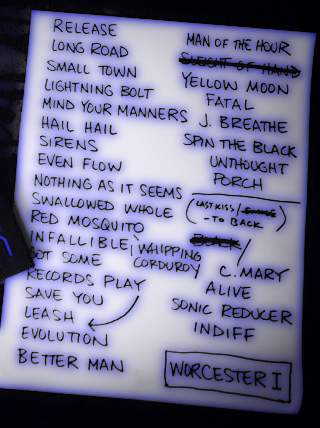 RELEASE
LONG ROAD
SMALL TOWN
LIGHTNING BOLT
MIND YOUR MANNERS
HAIL HAIL
SIRENS
EVEN FLOW
NOTHING AS IT SEEMS
SWALLOWED WHOLE
RED MOSQUITO
INFALLIBLE / WHIPPING
GOT SOME CORDUROY
RECORDS PLAY
SAVE YOU
LEASH
EVOLUTION
BETTER MAN
MAN OF THE HOUR
SLEIGHT OF HAND
YELLOW MOON
FATAL
J. BREATHE
SPIN THE BLACK
UNTHOUGHT
PORCH
(LAST KISS /
- TO BACK)
BLACK /
C. MARY
ALIVE
SONIC REDUCER
INDIFF
WORCESTER I